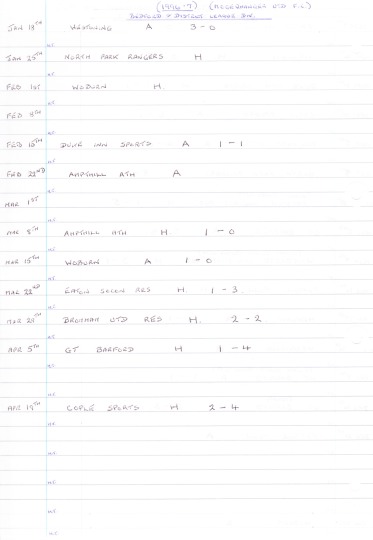 (1996-7) (MEPPERSHALL UTD F.C.)
BEDFORD & DISTRICT LEAGUE DIV.
JAN 18TH WESTONING A 3-0
JAN 25TH NORTH PARK RANGERS H
FEB 1ST WOBURN H.
FEB 8TH
FEB 15TH DUKE INN SPORTS A 1-1
FEB 22ND AMPTHILL ATH A
MAR 1ST
MAR 8TH AMPTHILL ATH H. 1-0
MAR 15TH WOBURN A 1-0
MAR 22ND EATON SOCON RES H. 1-3
MAR 29TH BROMHAM UTD RES H. 2-2
APR 5TH GT BARFORD H 1-4
APR 19TH COPLE SPORTS H 2-4